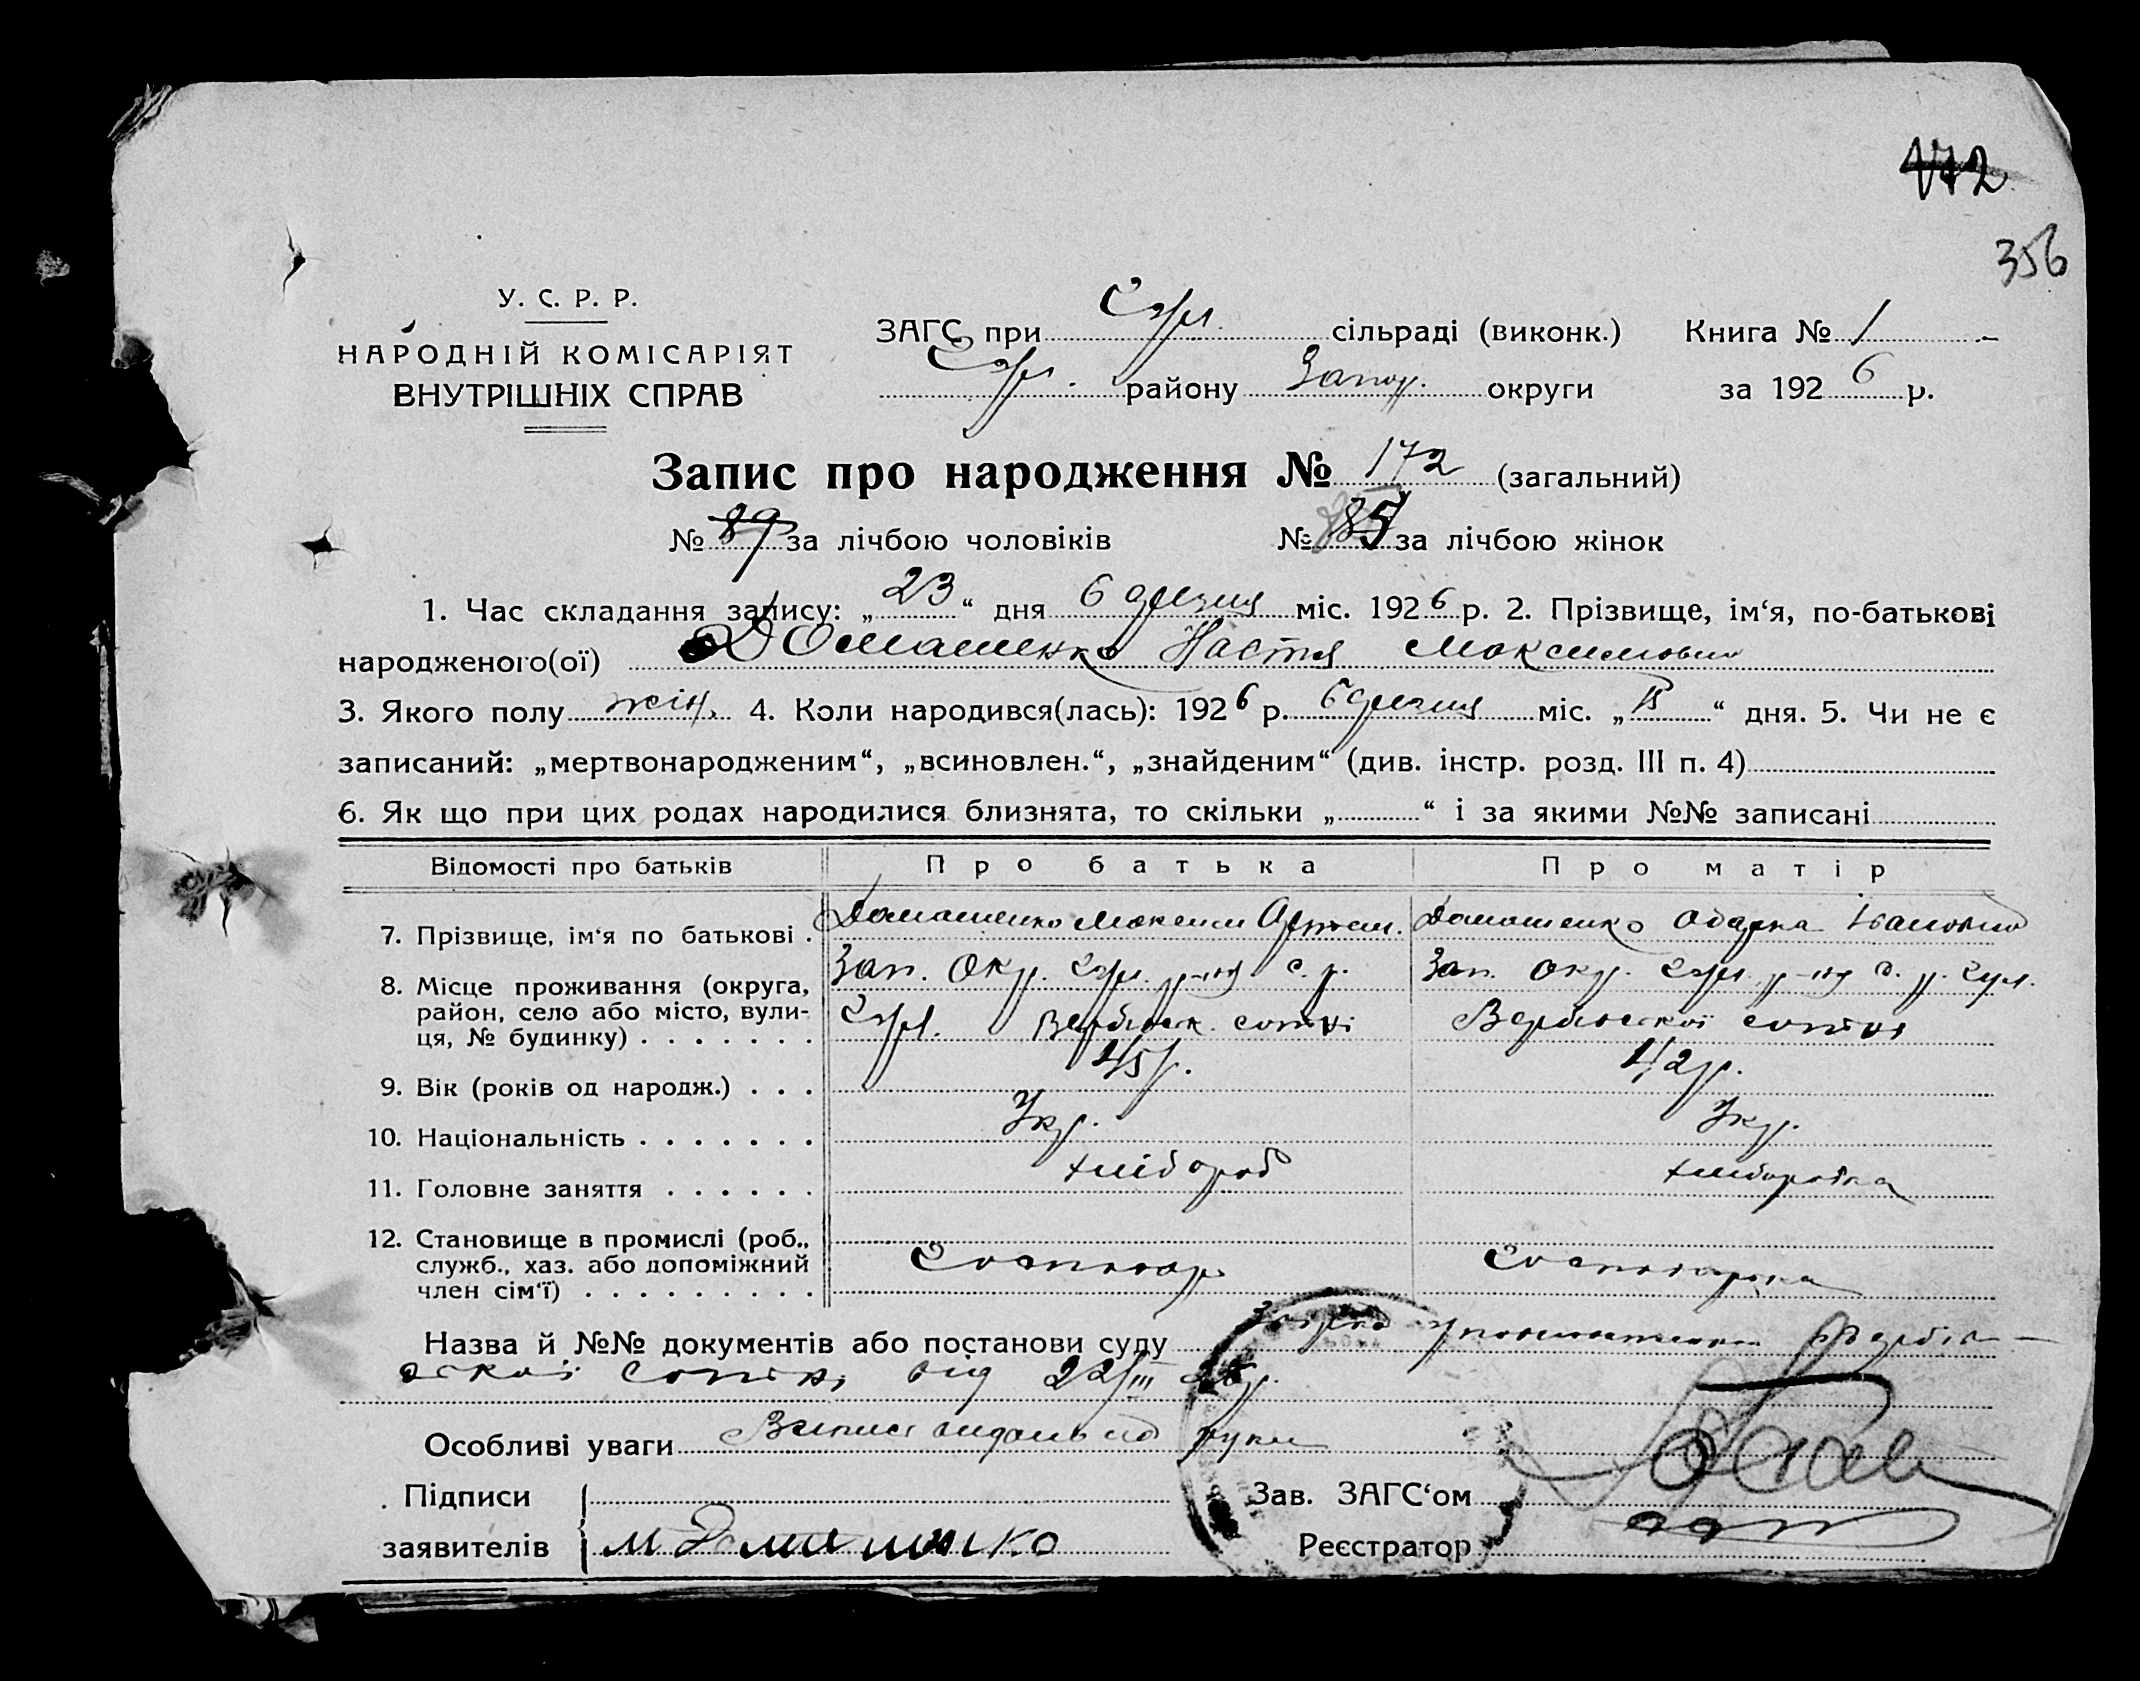 172
356
У. С. Р. Р.
НАРОДНІЙ КОМІСАРІЯТ
ВНУТРІШНІХ СПРАВ
ЗАГС при сільраді (виконк.) Книга № 1
району Запор. округи за 1926 р.
Запис про народження № 172 (загальний)
№ 89 за лічбою чоловіків № 85 за лічбою жінок
1. Час складання запису: „23“ дня березня міс. 1926 р. 2. Прізвище, ім‘я, по-батькові
народженого(ої) Домашенко Настя Максимовна
3. Якого полу жін. 4. Коли народився(лась): 1926 р. березня міс. „ “ дня. 5. Чи не є
записаний: „мертвонародженим“, „всиновлен.“, „знайденим“ (див. інстр. розд. III п. 4)
6. Як що при цих родах народилися близнята, то скільки „ “ і за якими №№ записані
Відомості про батьків Про батька Про матір
7. Прізвище, ім‘я по батькові . Домашенко Максим Артем. Домашенко Одарка Івановна
8. Місце проживання (округа, Зап. Окр. р-ну с. р. Зап. Окр. р-ну с. р.
район, село або місто, вули- Вербовск. сотні Вербовскої сотні
ця, № будинку) . . . . . . .
9. Вік (років од народж.) . . . 45 р. 42 р.
10. Національність . . . . . . . Укр. Укр.
11. Головне заняття . . . . . . хлібороб хлiборобка
12. Становище в промислі (роб.,
служб., хаз. або допоміжний Господар Господарка
член сім‘ї) . . . . . . . . .
Назва й №№ документів або постанови суду уповноваженого Вербов-
ської сотні від 22/III 26 р.
Особливі уваги Випис видано на руки
Підписи
заявителів М Домашенко
Зав. ЗАГС‘ом
Реєстратор